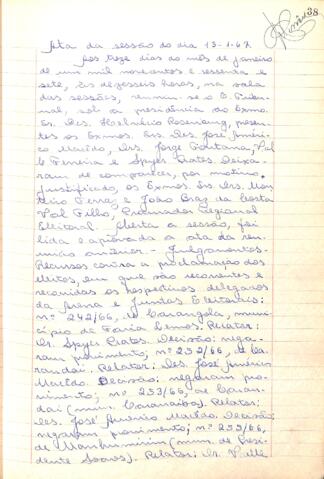 38
Ata da sessão do dia 13-1-67
Aos treze dias do mês de janeiro
de um mil novecentos e sessenta e
sete, às dezesseis horas, na sala
das sessões, reuniu-se o E. Tribu-
nal, sob a presidência do Exmo.
Sr. Des. Helvécio Rosenburg, presen-
tes os Exmos. Srs. Des. José Améri-
co Macêdo, Drs. Jorge Fontana, Val
le Ferreira e Spyer Prates. Deixa-
ram de comparecer, por motivo
justificado, os Exmos. Srs. Drs. Mon
teiro Ferraz e João Braz da Costa
Val Filho, Procurador Regional
Eleitoral. Aberta a sessão, foi
lida e aprovada a ata da reu-
nião anterior - Julgamentos.
Recursos contra a proclamação dos
eleitos, em que são recorrentes e
recorridos os respectivos delegados
da Arena e Juntas Eleitorais:
nº 242/66, de Carangola, muni-
cípio de Faria Lemos. Relator:
Dr. Spyer Prates. Decisão: nega-
ram provimento; nº 252/66, de Ca-
randaí. Relator: Des. José Américo
Macêdo. Decisão: negaram pro-
vimento; nº 253/66, de Caran
daí (mun. Caranaíba). Relator:
Des. José Américo Macêdo. Decisão:
negaram provimento; nº 255/66,
de Manhumirim (mun. de Presi-
dente Soares). Relator: Dr. Valle